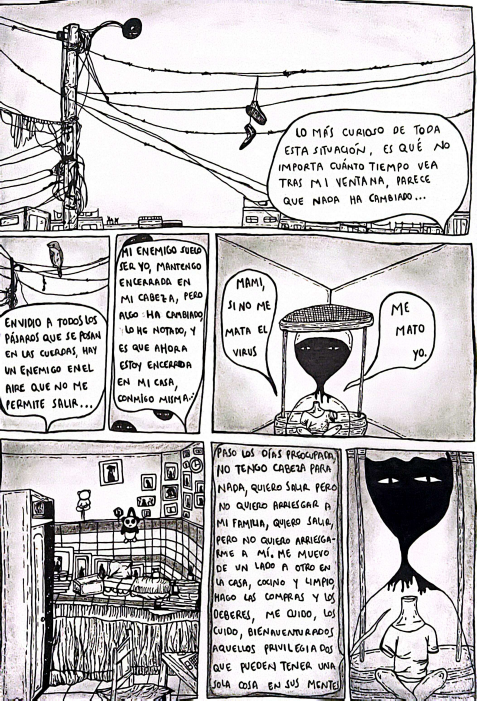 LO MÁS CURIOSO DE TODA
ESTA SITUACIÓN, ES QUÉ NO
IMPORTA CUÁNTO TIEMPO VEA
TRAS MI VENTANA, PARECE
QUE NADA HA CAMBIADO...
ENVIDIO A TODOS LOS
PÁJAROS QUE SE POSAN
EN LAS CUERDAS, HAY
UN ENEMIGO EN EL
AIRE QUE NO ME
PERMITE SALIR...
MI ENEMIGO SUELO
SER YO, MANTENGO
ENCERRADA EN
MI CABEZA, PERO
ALGO HA CAMBIADO,
LO HE NOTADO, Y
ES QUE AHORA
ESTOY ENCERRADA
EN MI CASA,
CONMIGO MISMA...
MAMI,
SI NO ME
MATA EL
VIRUS
ME
MATO
YO.
PASO LOS DÍAS PREOCUPADA,
NO TENGO CABEZA PARA
NADA, QUIERO SALIR PERO
NO QUIERO ARRIESGAR A
MI FAMILIA, QUIERO SALIR,
PERO NO QUIERO ARRIESGA-
RME A MÍ. ME MUEVO
DE UN LADO A OTRO EN
LA CASA, COCINO Y LIMPIO,
HAGO LAS COMPRAS Y LOS
DEBERES, ME CUIDO, LOS
CUIDO, BIENAVENTURADOS
AQUELLOS PRIVILEGIADOS
QUE PUEDEN TENER UNA
SOLA COSA EN SUS MENTES